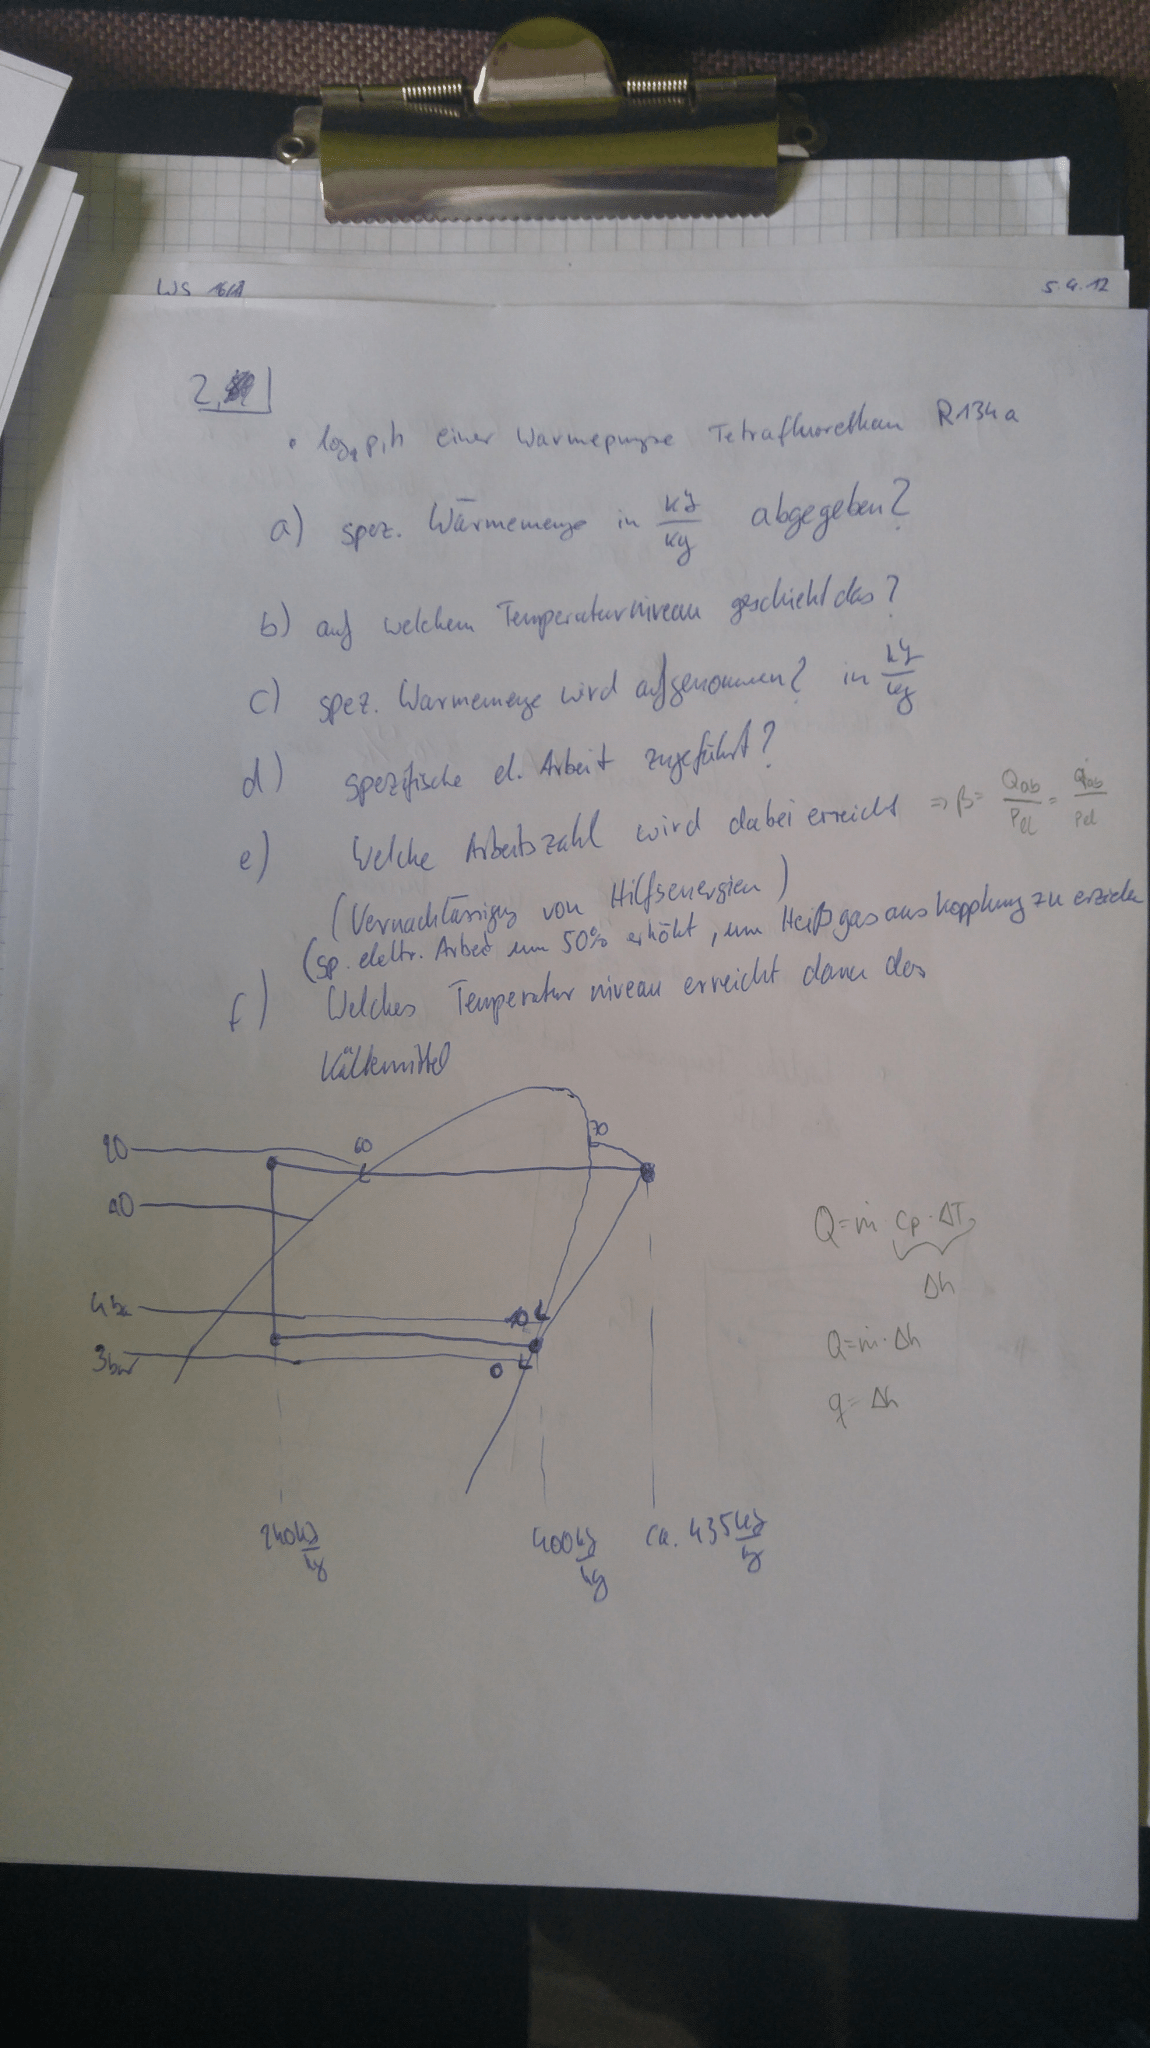 WS 16/17
5.4.17
2.
• log p,h einer Wärmepumpe Tetrafluorethan R134a
a) spez. Wärmemenge in kJ/kg abgegeben?
b) auf welchem Temperaturniveau geschieht das?
c) spez. Wärmemenge wird aufgenommen? in kJ/kg
d) spezifische el. Arbeit zugeführt?
e) Welche Arbeitszahl wird dabei erreicht => β = Qab/Pel = Q̇ab/Pel
(Vernachlässigung von Hilfsenergien)
(sp. elektr. Arbeit um 50% erhöht, um Heißgasauskopplung zu erzielen
f) Welches Temperaturniveau erreicht dann das
Kältemittel
20
60
70
10
4 bar
10
3 bar
0
240 kJ/kg
400 kJ/kg
ca. 435 kJ/kg
Q = ṁ · cp · ΔT
Δh
Q = ṁ · Δh
q = Δh